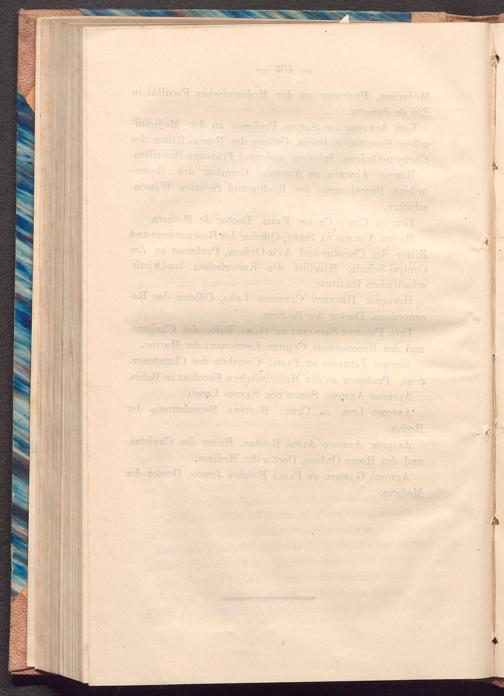 — 403 —
Medaillen, Professor an der Medicinischen Facultat in
Rio de Janeiro.
Luiz Alvares dos Santos, Professor an der Medicini-
schen Facultat in Bahia, Officier des Rosen-Ritter des
Christus-Ordens, Inhaber mehrerer Feldzugs-Medaillen.
Adolpho de Azevedo, Comthur des Rosen-
ordens, Baccalaureus der Rechts-und Socialen Wissen-
schaften.
Luiz da Costa Chaves Faria, Doctor de Medicin.
Miguel Antonio da Silva, Officier des Rosenordens und
Ritter des Christus-und Aviz-Ordens, Professor an der
Central-Schule, Mitglied des Kaiserlichen landwirth-
schaftlichen Instituts.
Henrique Hermeto Carneiro Leão, Officier des Ro-
senordens, Doctor der Medicin.
Luiz Philippe Saldanha da Gama, Ritter des Christus
und des Rosenordens, Capitän-Lieutenant der Marine.
Antonio Januario de Faria, Comthur des Christusor-
dens, Professor an der Medicinischen Facultat in Bahia.
Antonio Simões dos Santos Lisboa.
Antonio Luiz da Costa Barbosa, Baccalaureus der
Rechte.
Joaquim Antonio Alves Ribeiro, Ritter des Christus-
und des Rosen-Ordens, Doctor der Medicin.
Antonio Gabriel de Paula Fonseca Junior, Doctor der
Medicin.